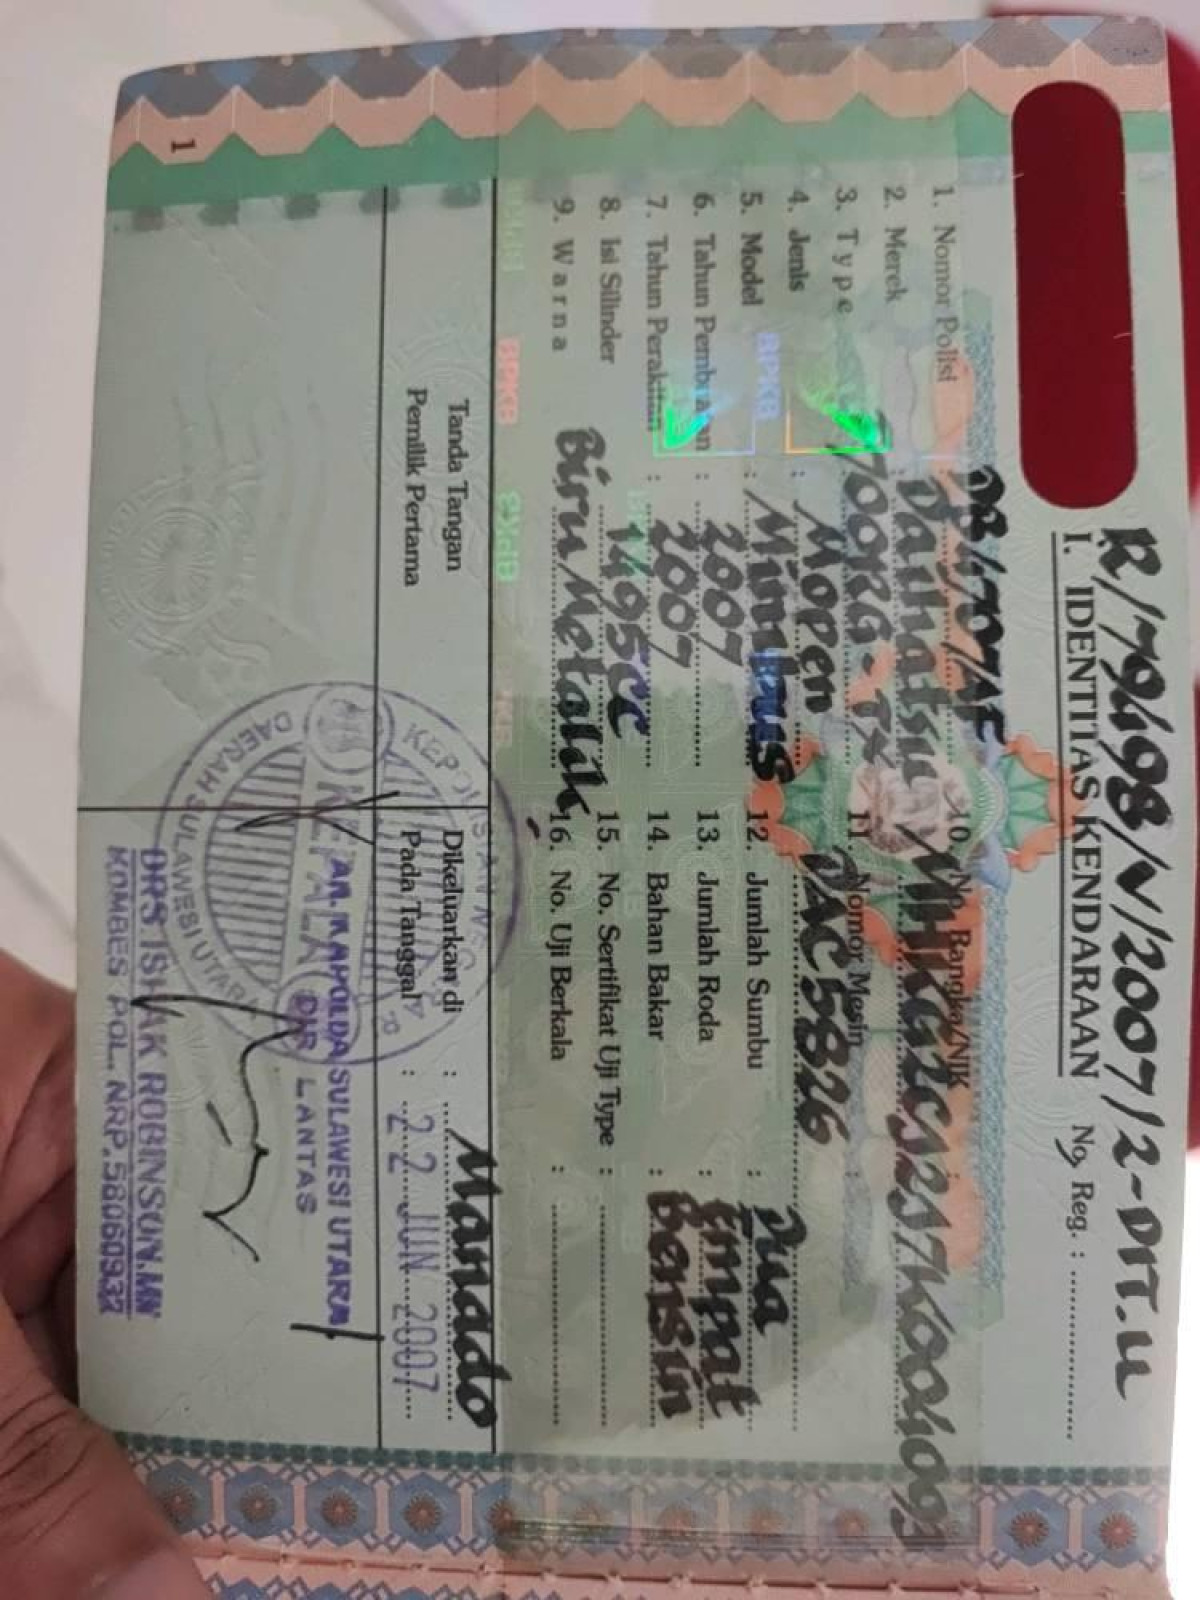 R/79698/V/2007/2-DIT.LL
I. IDENTITAS KENDARAAN No. Reg. :
1. Nomor Polisi : DB/7071/AF
2. Merek : Daihatsu
3. Type
4. Jenis : Mopen
5. Model : Minibus
6. Tahun Pembuatan : 2007
7. Tahun Perakitan : 2007
8. Isi Silinder 1495CC
9. Warna Biru Metalik
10. No. Rangka/NIK :
11. Nomor Mesin :
DAC5826
12. Jumlah Sumbu : Dua
13. Jumlah Roda : Empat
14. Bahan Bakar : Bensin
15. No. Sertifikat Uji Type :
16. No. Uji Berkala :
BPKB
Tanda Tangan
Pemilik Pertama
Dikeluarkan di : Manado
Pada Tanggal : 22 JUN 2007
KEPOLISIAN NEG
DAERAH SULAWESI UTARA
KEPALA
AN. KAPOLDA SULAWESI UTARA
DIR LANTAS
DRS. ISHAK ROBINSON.MN
KOMBES POL. NRP.58060932
1